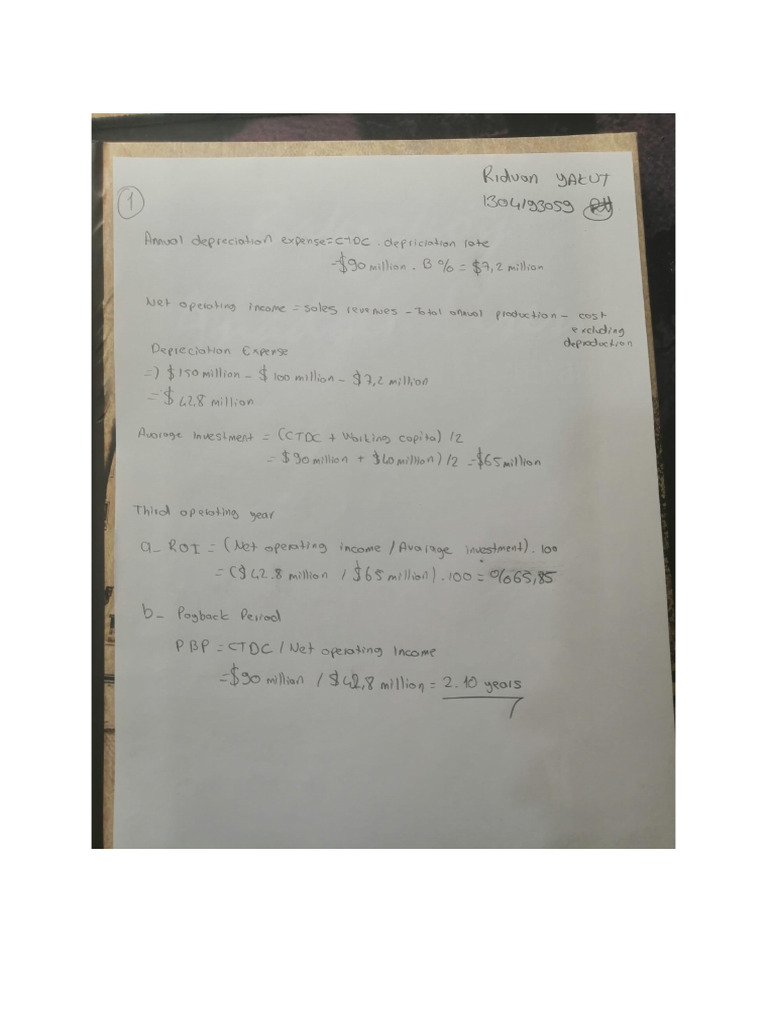 Ridvan YAKUT
1
1304193059
Annual depreciation expense = CTDC . depriciation rate
= $90 million . 8 % = $7,2 million
Net operating income = sales revenues - Total annual production - cost
excluding
deproduction
Depreciation Expense
=) $150 million - $100 million - $7,2 million
= $42.8 million
Avarage Investment = (CTDC + Working capital) /2
= $90 million + $40 million) /2 = $65 million
Third operating year
a- ROI = (Net operating income / Avarage investment) . 100
= ($42.8 million / $65 million) . 100 = %65,85
b- Payback Period
PBP = CTDC / Net operating Income
= $90 million / $42,8 million = 2.10 years